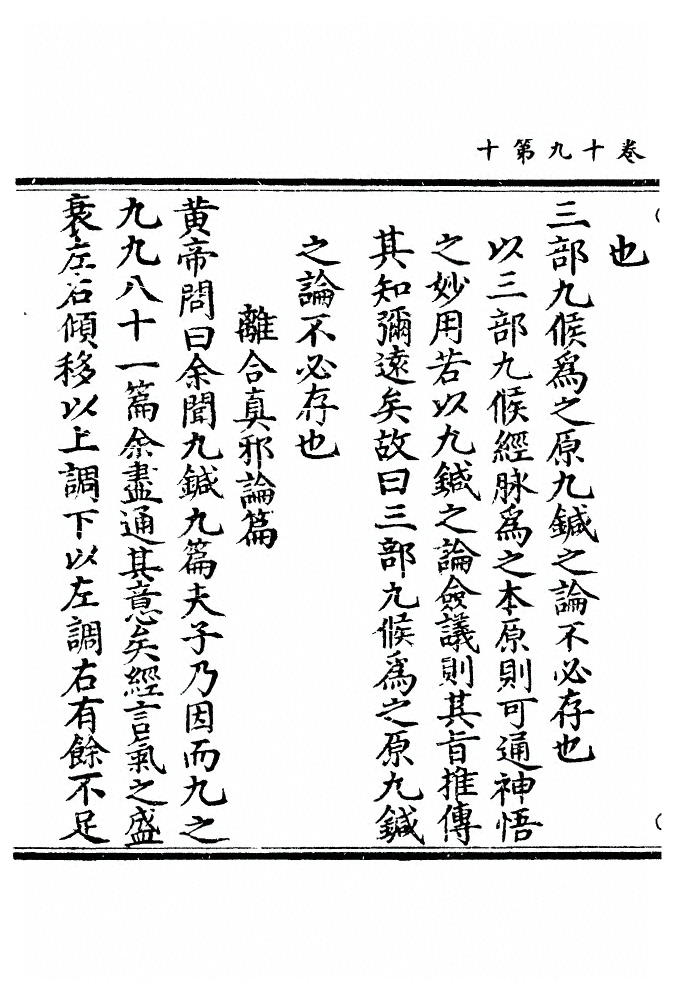 卷十九第十
也
三部九候爲之原九鍼之論不必存也
以三部九候經脉爲之本原則可通神悟
之妙用若以九鍼之論僉議則其旨推傳
其知彌遠矣故曰三部九候爲之原九鍼
之論不必存也
離合真邪論篇
黄帝問曰余聞九鍼九篇夫子乃因而九之
九九八十一篇余盡通其意矣經言氣之盛
衰左右傾移以上調下以左調右有餘不足